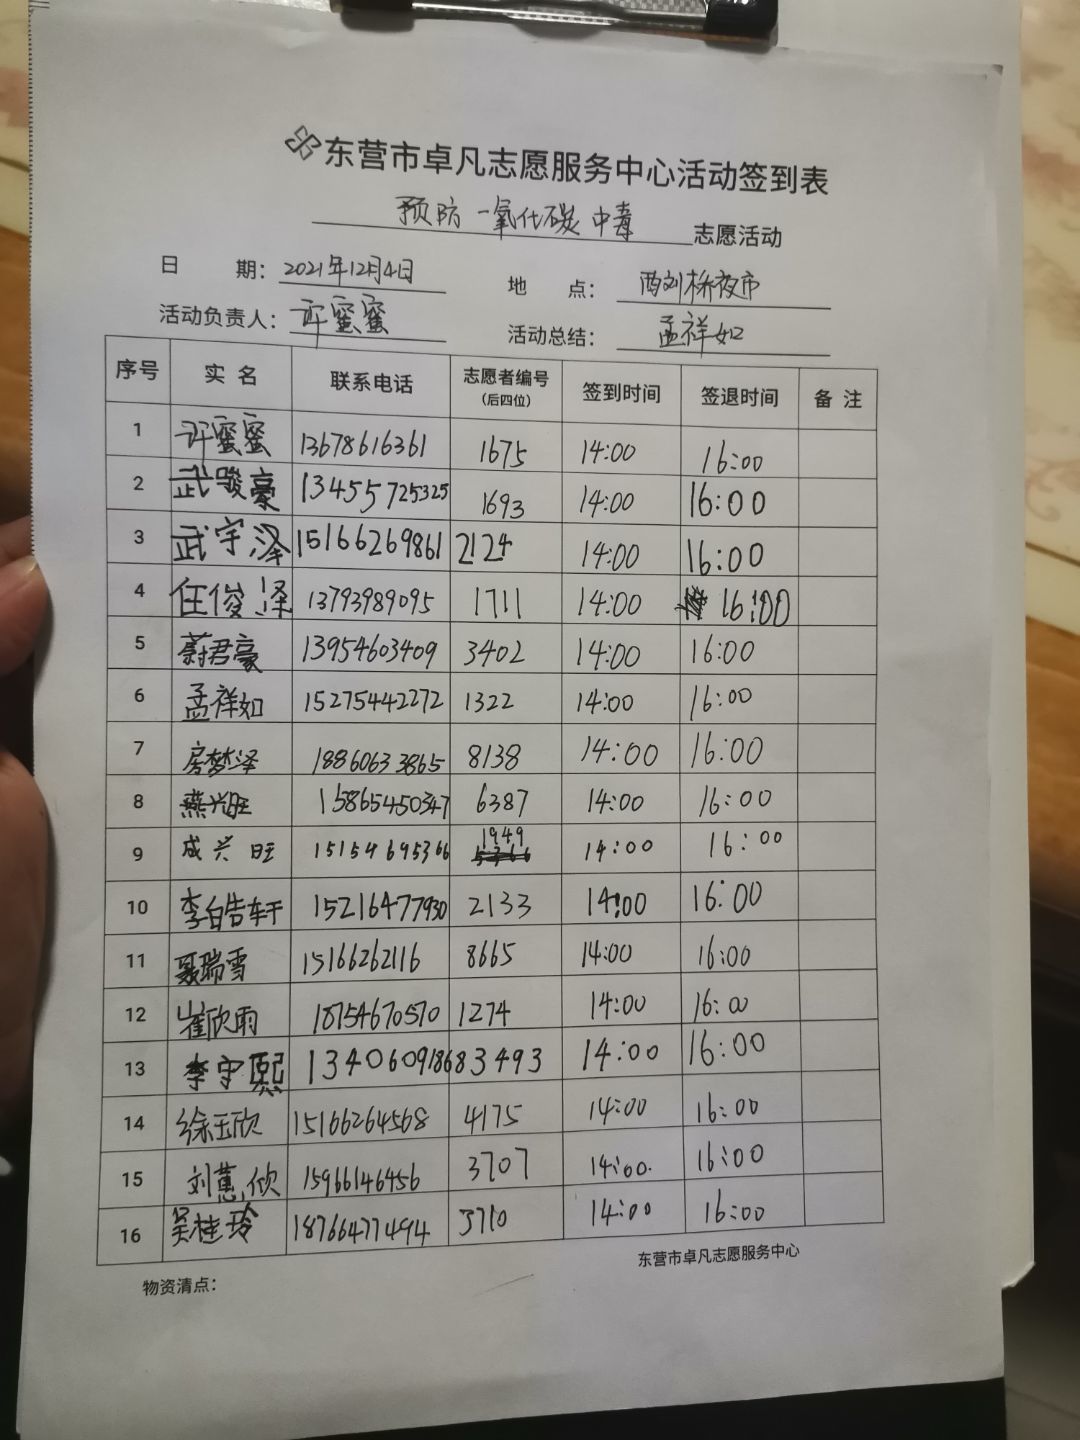 东营市卓凡志愿服务中心活动签到表
预防一氧化碳中毒 志愿活动
日 期: 2021年12月4日 地 点: 西刘桥夜市
活动负责人: 许蜜蜜 活动总结: 孟祥如
序号 实名 联系电话 志愿者编号(后四位) 签到时间 签退时间 备注
1 许蜜蜜 13678616361 1675 14:00 16:00
2 武骏豪 13455725325 1693 14:00 16:00
3 武宇泽 15166269861 2124 14:00 16:00
4 任俊泽 13793989095 1711 14:00 16:00
5 蔚君豪 13954603409 3402 14:00 16:00
6 孟祥如 15275442272 1322 14:00 16:00
7 房梦泽 18860633865 8138 14:00 16:00
8 燕兴旺 15865450347 6387 14:00 16:00
9 成兴旺 15154695366 1949 14:00 16:00
10 李皓轩 15216477930 2133 14:00 16:00
11 聂瑞雪 15166262116 8665 14:00 16:00
12 崔欣雨 18754670570 1274 14:00 16:00
13 李宇熙 13406091868 3493 14:00 16:00
14 徐玉欣 15166264568 4175 14:00 16:00
15 刘蕙欣 15966146456 3707 14:00 16:00
16 吴桂玲 18766477494 3710 14:00 16:00
东营市卓凡志愿服务中心
物资清点: